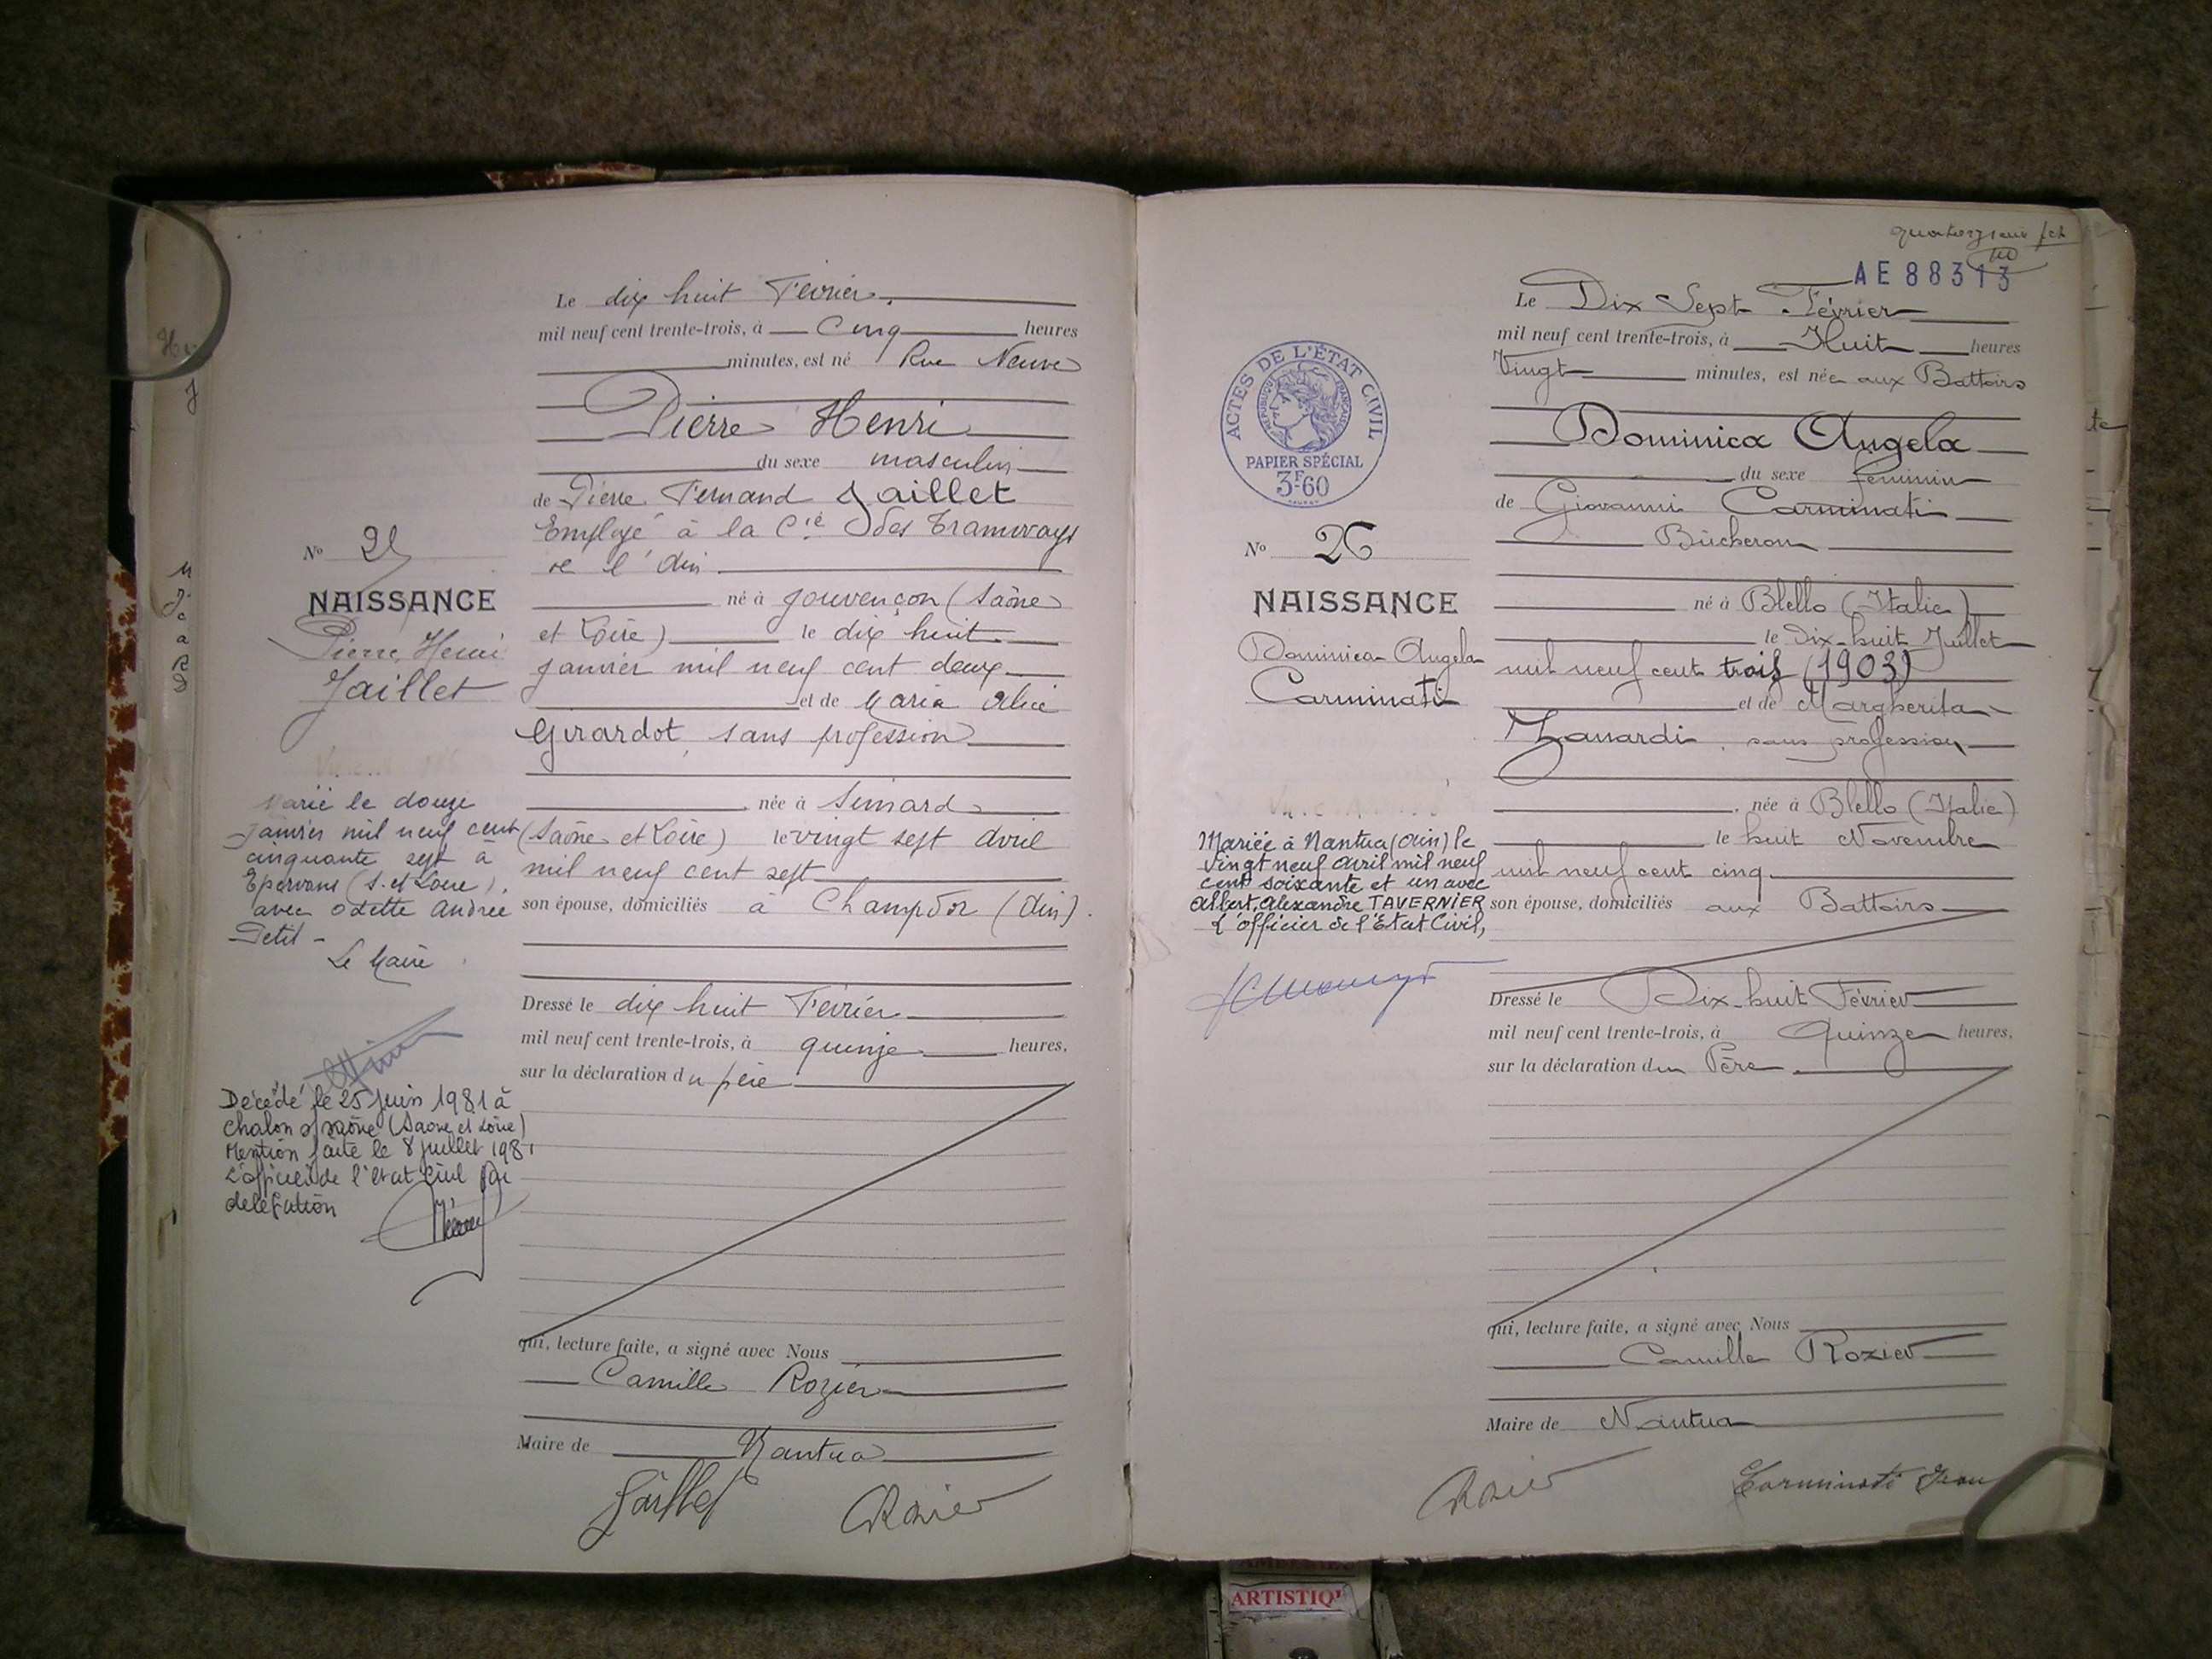 Le dix huit Février.
mil neuf cent trente-trois, à cinq heures
minutes, est né Rue Neuve
Pierre Henri
du sexe masculin
de Pierre Fernand Jaillet
Employé à la Cie des Tramways
de l'Ain
né à Jouvençon (Saône
et Loire) le dix huit
janvier mil neuf cent deux
et de Maria Alice
Girardot, sans profession
née à Simard
(Saône et Loire) le vingt sept Avril
mil neuf cent sept
son épouse, domiciliés à Champdor (Ain).
Dressé le dix huit Février
mil neuf cent trente-trois, à quinze heures,
sur la déclaration du père
qui, lecture faite, a signé avec Nous
Camille Rozier
Maire de Nantua
Jaillet
CRozier
No 25
NAISSANCE
Pierre Henri
Jaillet
Marié le douze
Janvier mil neuf cent
cinquante sept à
Epervans (S. et Loire).
avec Odette Andrée
Petit -
Le Maire
Décédé le 25 juin 1981 à
Chalon s/ saône (Saone et Loire)
Mention faite le 8 juillet 1981
L'officier de l'Etat Civil par
délégation
AE 88313
Le Dix Sept Février
mil neuf cent trente-trois, à Huit heures
Vingt minutes, est née aux Battoirs
Dominica Angela
du sexe féminin
de Giovanni Carminati
Bûcheron
né à Blello (Italie)
le Dix-huit Juillet
mil neuf cent trois (1903)
et de Margherita
Zanardi, sans profession
née à Blello (Italie)
le huit Novembre
mil neuf cent cinq
son épouse, domiciliés aux Battoirs
Dressé le Dix-huit Février
mil neuf cent trente-trois, à Quinze heures,
sur la déclaration du Père.
qui, lecture faite, a signé avec Nous
Camille Rozier
Maire de Nantua
CRozier
Carminati Jean
ACTES DE L'ÉTAT CIVIL
RÉPUBLIQUE FRANÇAISE
PAPIER SPÉCIAL
3F60
No 26
NAISSANCE
Dominica Angela
Carminati
Mariée à Nantua (Ain) le
vingt neuf avril mil neuf
cent soixante et un avec
Albert, Alexandre TAVERNIER
L'officier de l'Etat Civil,
ARTISTIQ